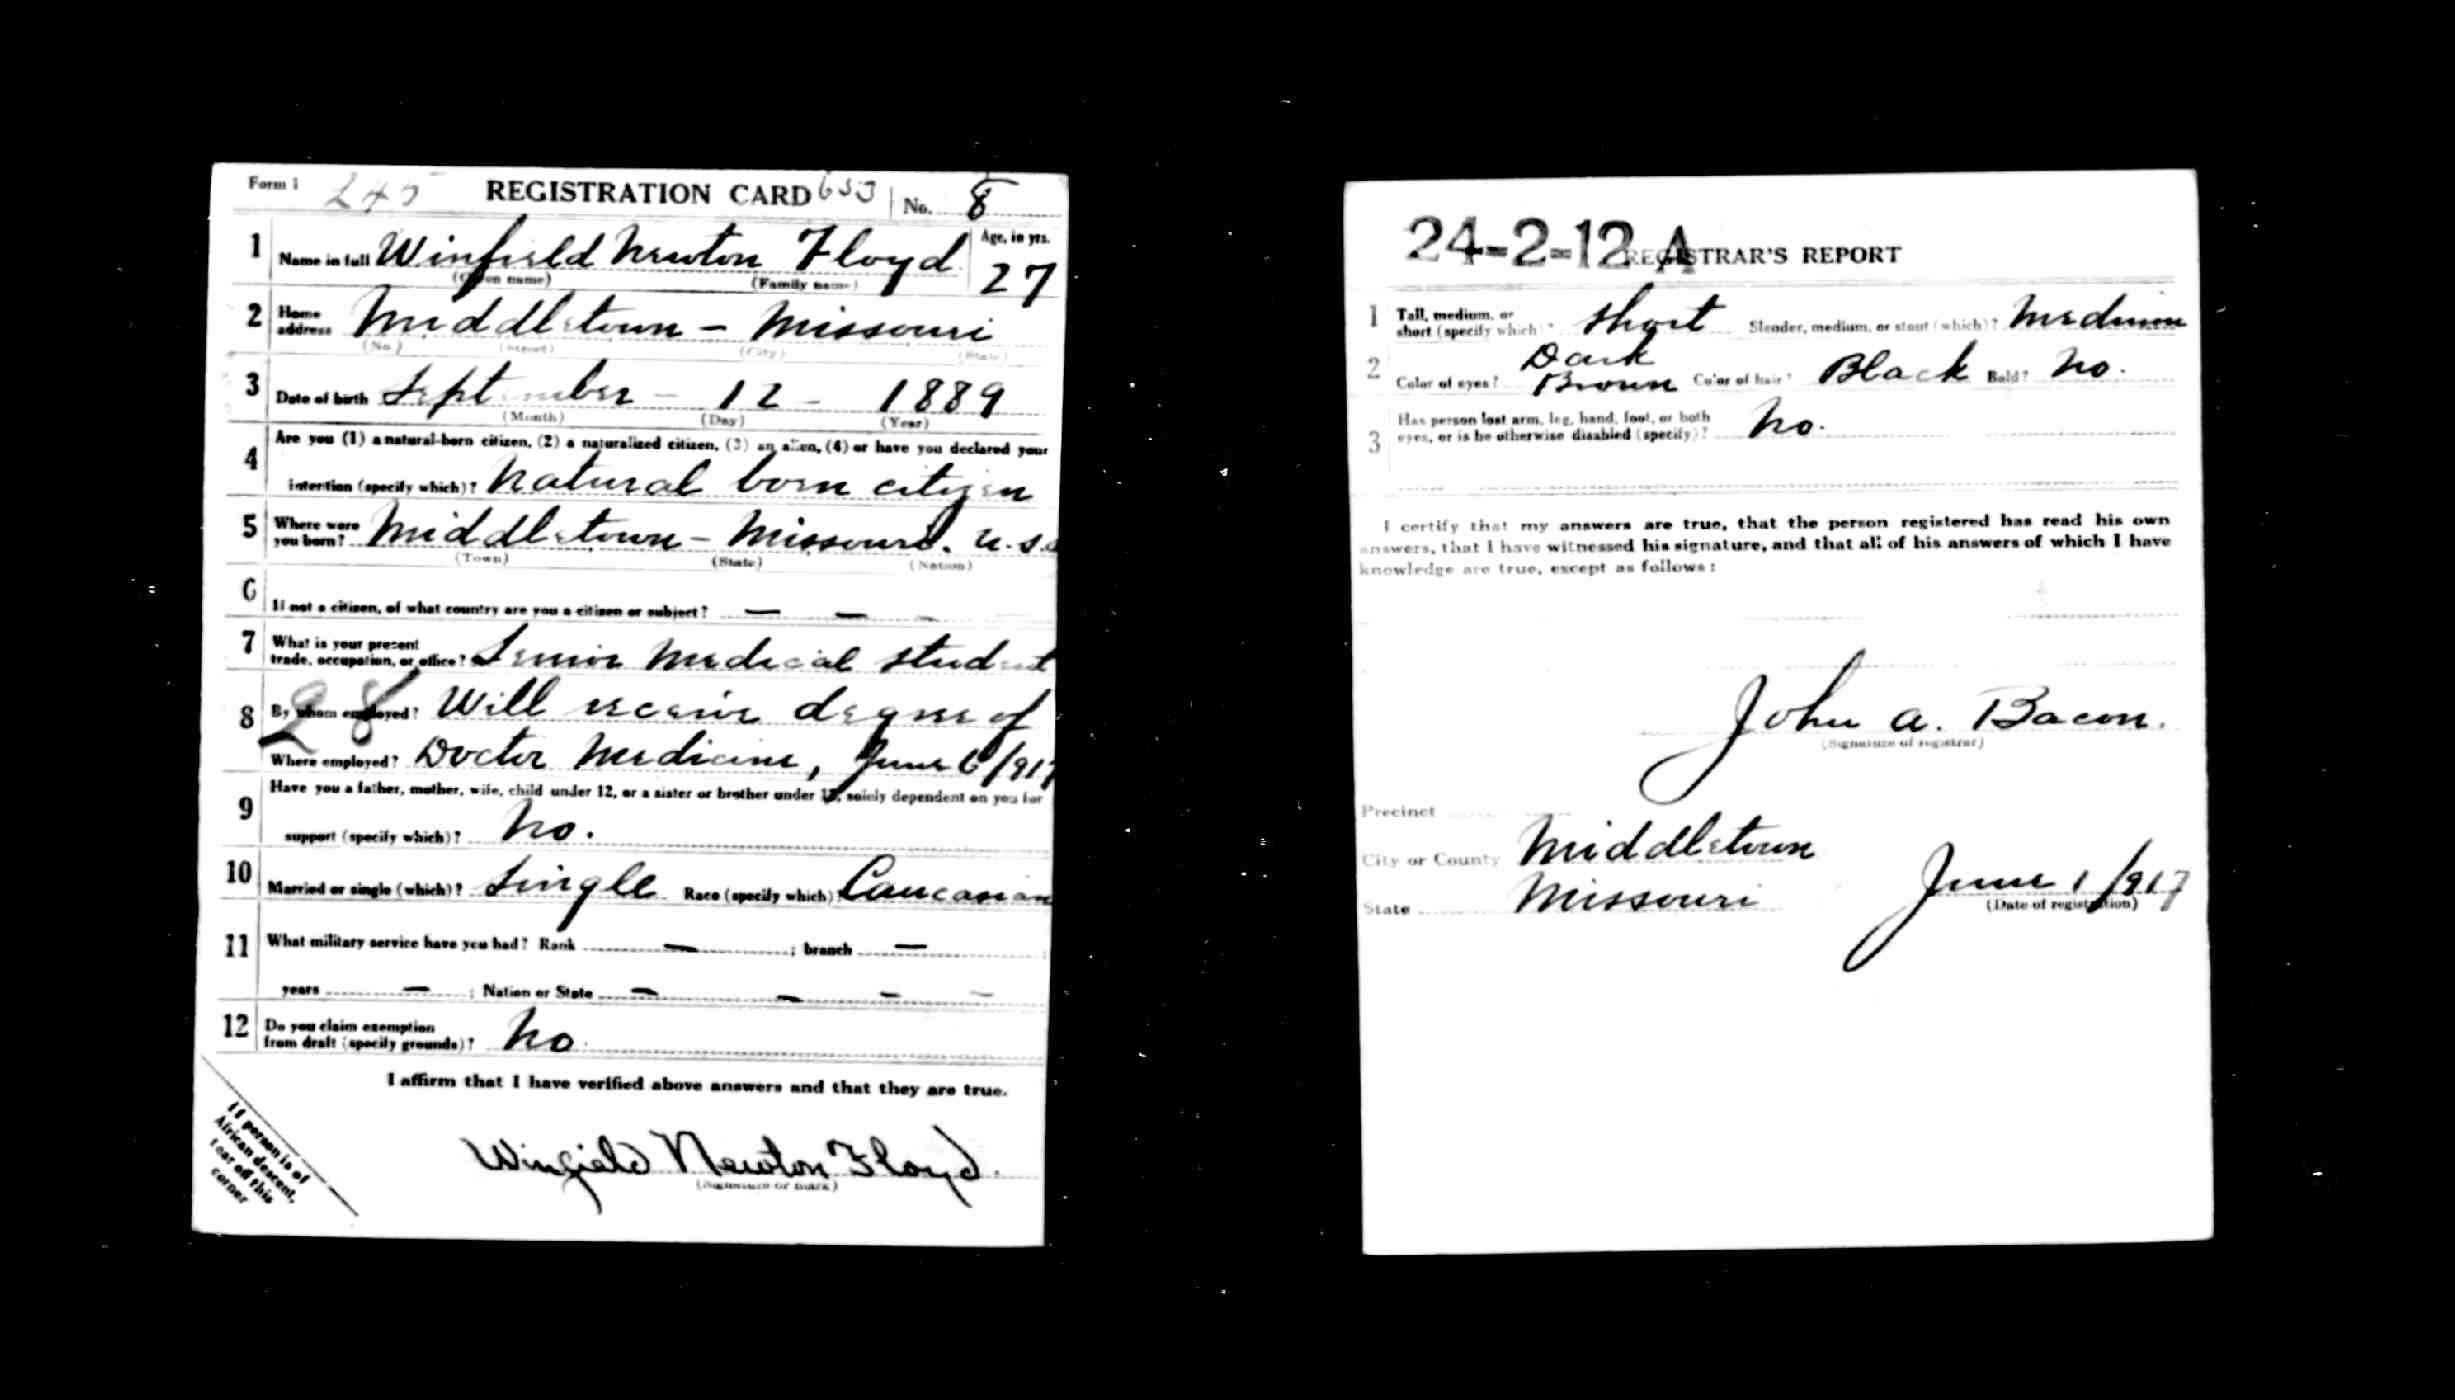 Form 1 245 REGISTRATION CARD 653 No. 8
1 Name in full Winfield Newton Floyd Age, in yrs. 27
(Given name) (Family name)
2 Home address Middletown - Missouri
(No.) (Street) (City) (State)
3 Date of birth September - 12 - 1889
(Month) (Day) (Year)
4 Are you (1) a natural-born citizen, (2) a naturalized citizen, (3) an alien, (4) or have you declared your
intention (specify which)? Natural born citizen
5 Where were you born? Middletown - Missouri. U.S.
(Town) (State) (Nation)
6 If not a citizen, of what country are you a citizen or subject? — — -
7 What is your present
trade, occupation, or office? Senior Medical student
8 By whom employed? Will receive degree of
28
Where employed? Doctor Medicine, June 6/917
9 Have you a father, mother, wife, child under 12, or a sister or brother under 12, solely dependent on you for
support (specify which)? No.
10 Married or single (which)? Single Race (specify which)? Caucasian
11 What military service have you had? Rank — ; branch —
years — ; Nation or State — — — —
12 Do you claim exemption
from draft (specify grounds)? No
I affirm that I have verified above answers and that they are true.
Winfield Newton Floyd.
(Signature or mark)
If person is of
African descent,
tear off this
corner
24-2-12 A
REGISTRAR'S REPORT
1 Tall, medium, or
short (specify which)? Short Slender, medium, or stout (which)? Medium
2 Color of eyes? Dark Brown Color of hair? Black Bald? No.
3 Has person lost arm, leg, hand, foot, or both
eyes, or is he otherwise disabled (specify)? No.
I certify that my answers are true, that the person registered has read his own
answers, that I have witnessed his signature, and that all of his answers of which I have
knowledge are true, except as follows:
John A. Bacon.
(Signature of registrar)
Precinct
City or County Middletown
State Missouri June 1/917
(Date of registration)